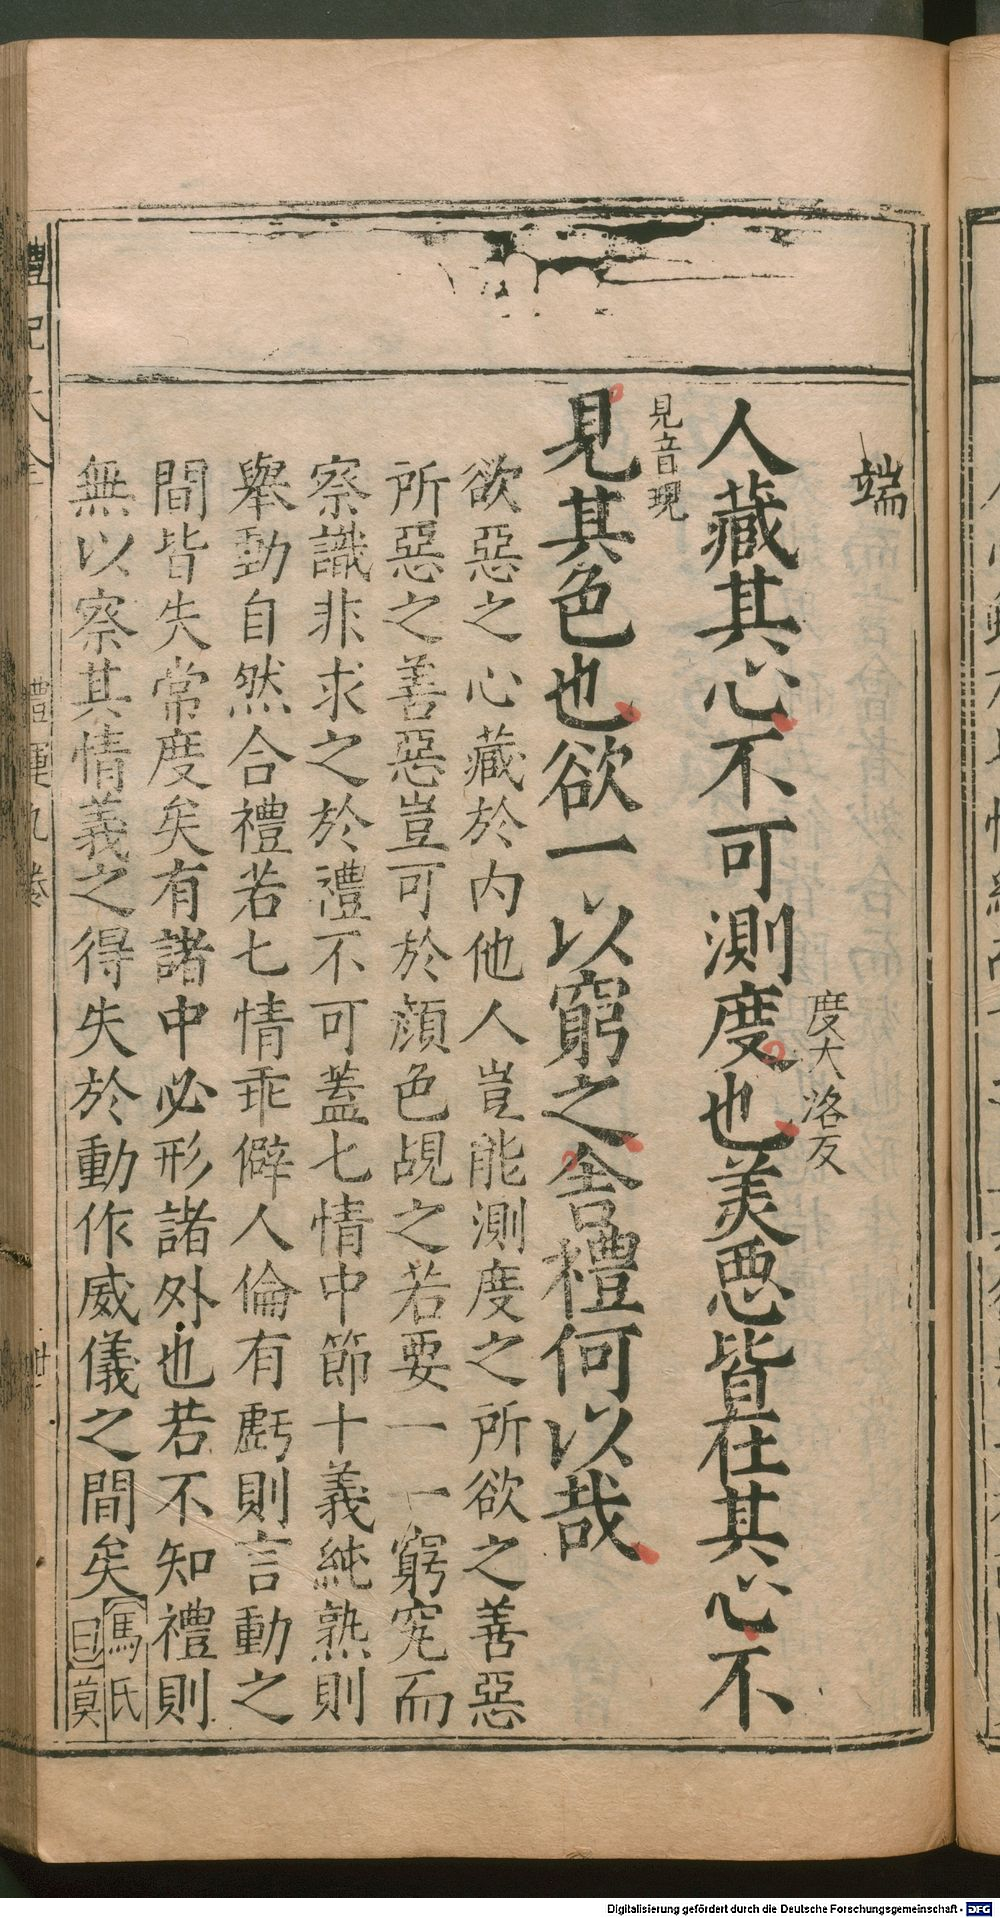 端
人藏其心不可測度也美惡皆在其心不
度大洛反
見其色也欲一以窮之舍禮何以哉
見音現
欲惡之心藏於内他人豈能測度之所欲之善惡
所惡之善惡豈可於顔色覘之若要一一窮究而
察識非求之於禮不可蓋七情中節十義純熟則
舉動自然合禮若七情乖僻人倫有虧則言動之
間皆失常度矣有諸中必形諸外也若不知禮則
無以察其情義之得失於動作威儀之間矣馬氏曰莫
禮記大全
禮運九卷
Digitalisierung gefördert durch die Deutsche Forschungsgemeinschaft - DFG